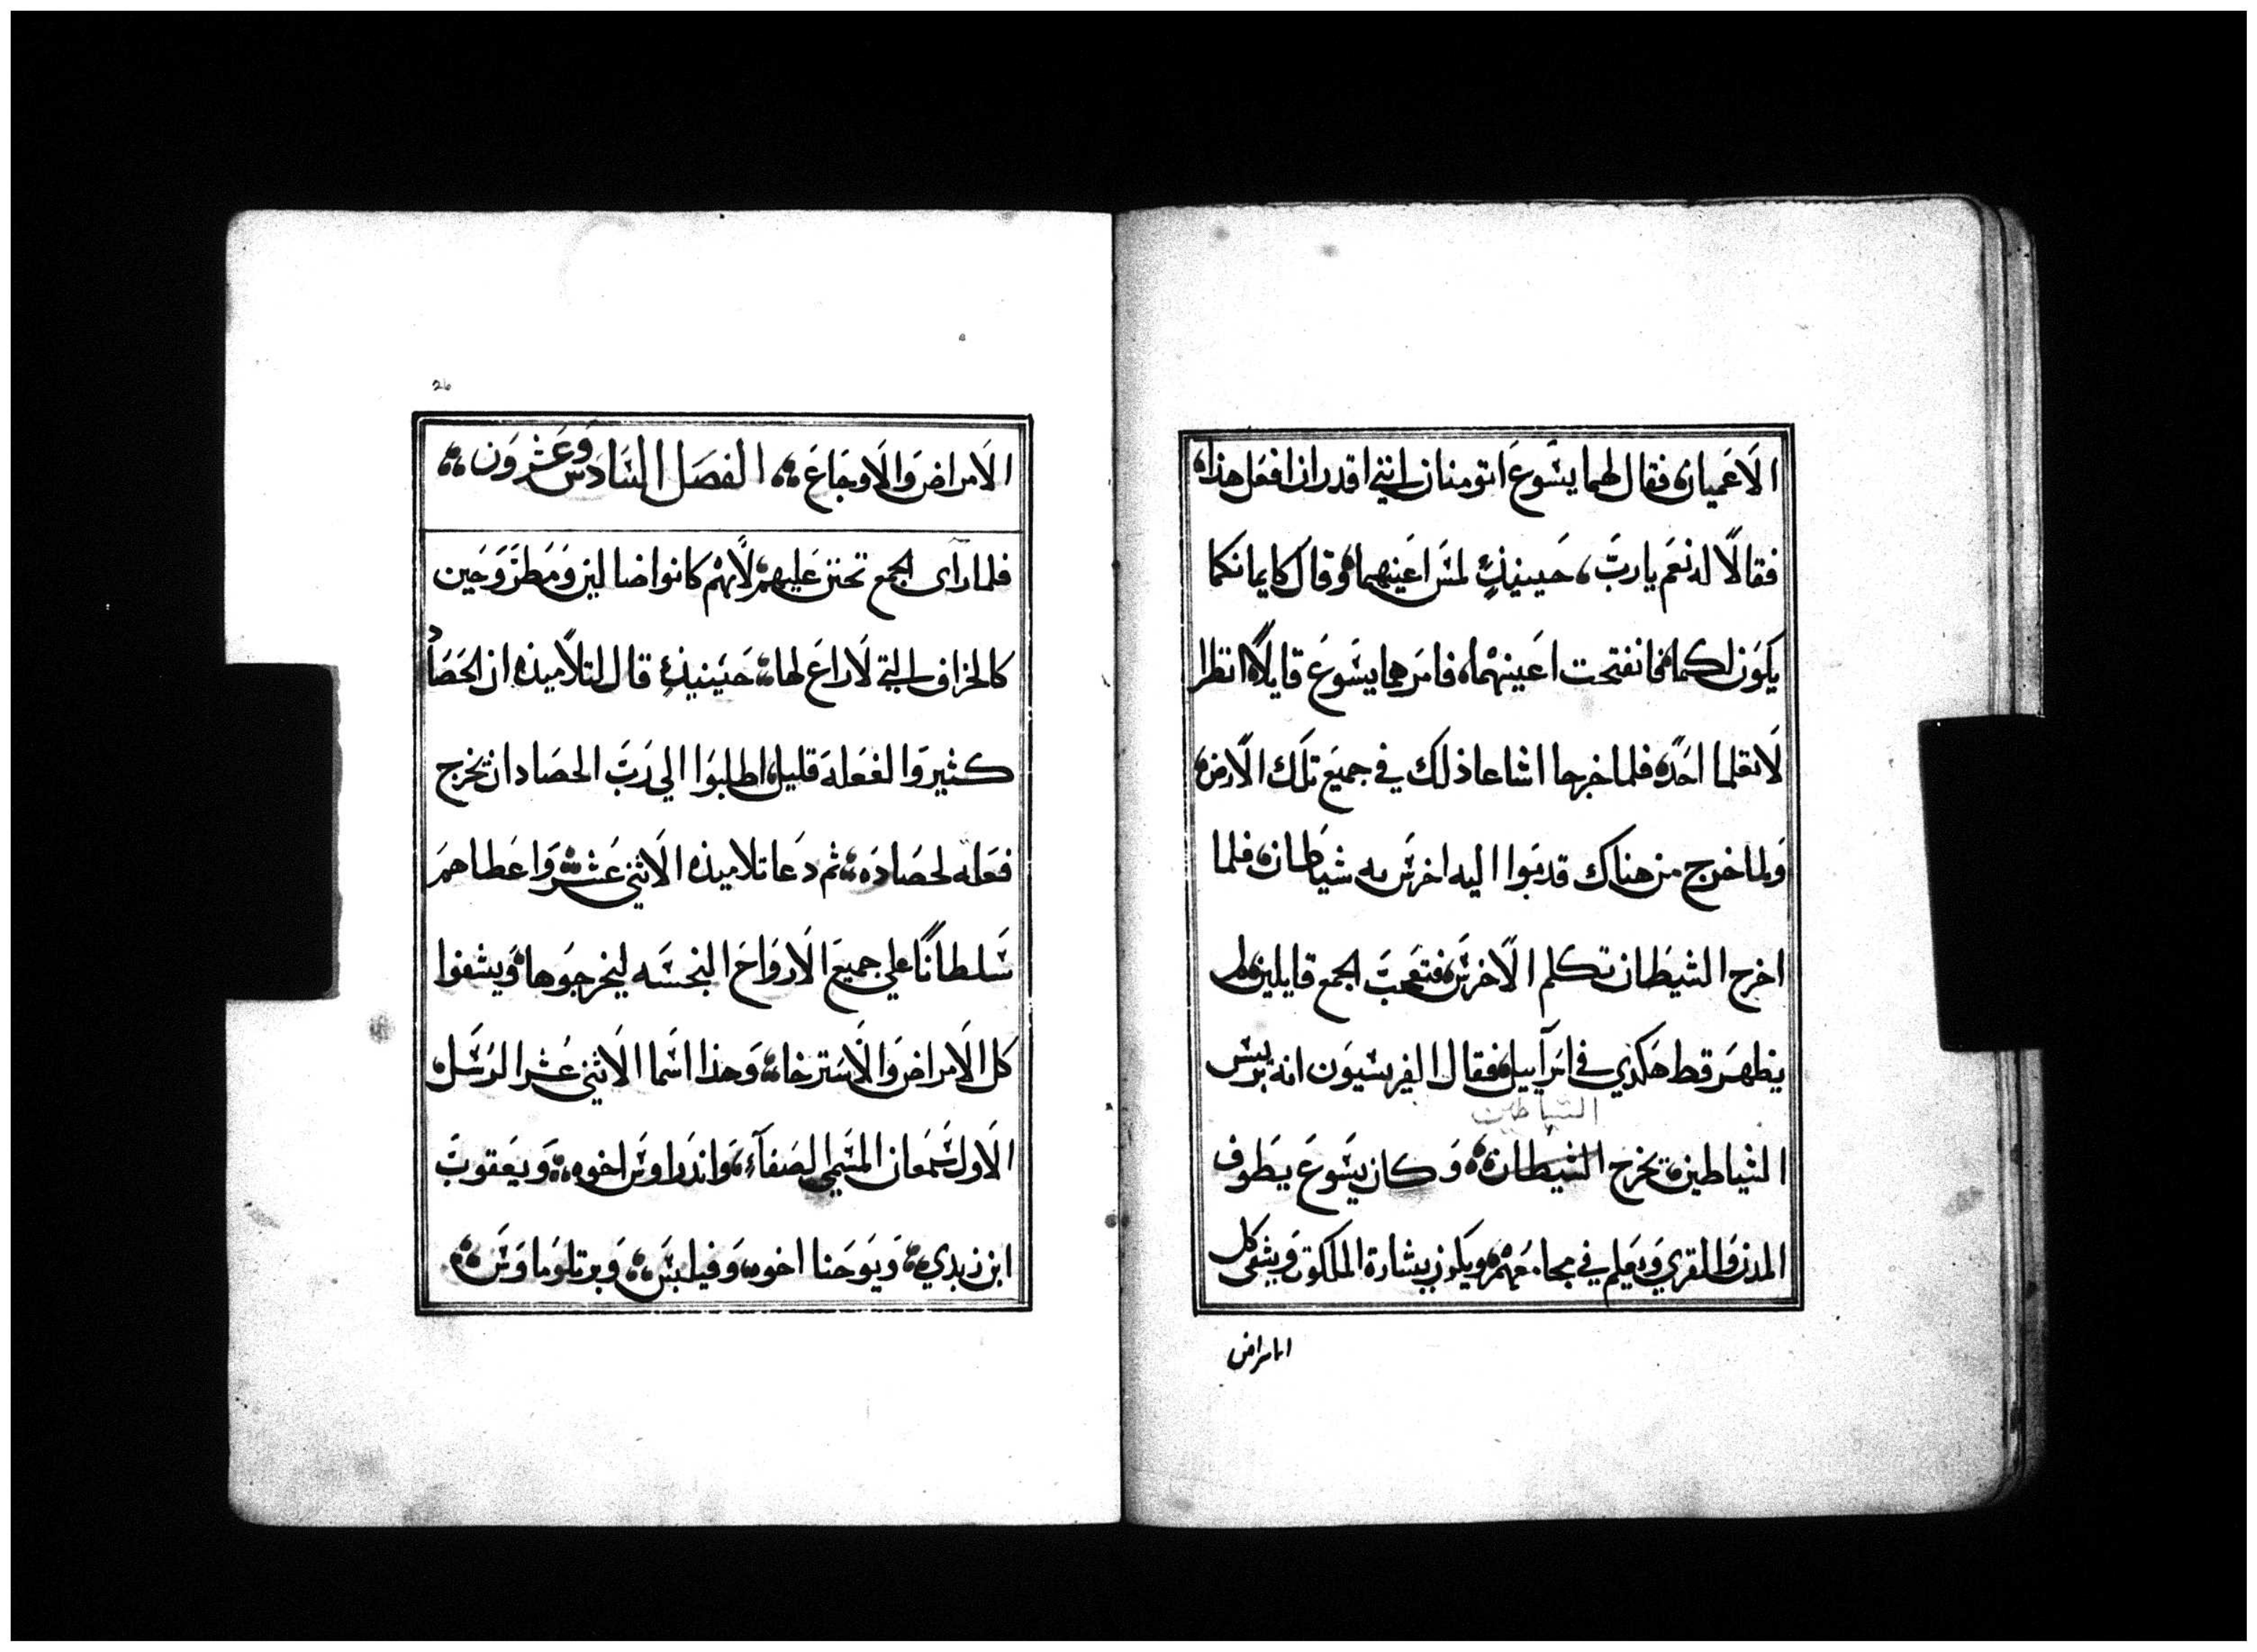 الاعميان فقال لهما يسوع اتومنان انني اقدر ان افعل هذا
فقالا له نعم يا رب، حينيذٍ لمس اعينهما وقال كايمانكما
يكون لكما فانفتحت اعينهما، فامرهما يسوع قايلاً انظرا
لا تعلما احد، فلما خرجا اشاعا ذلك في جميع تلك الارض
ولما خرج من هناك قدموا اليه اخرس به شيطان، فلما
اخرج الشيطان تكلم الاخرس، فتعجب الجمع قايلين لم
يظهر قط هكدي في اسرآييل، فقال الفريسيون انه بريس
الشياطين
الشياطين يخرج الشيطان، وكان يسوع يطوف
المدن والقري ويعلم في مجامعهم، ويكرز ببشارة الملكوت ويشفي كل
الامراض
26
الامراض والاوجاع، الفصل السادس وعشرون
فلما رآى الجمع تحنن عليهم، لانهم كانوا ضالين ومطروحين
كالخراف التي لا راع لها، حينيذٍ قال لتلاميذه ان الحصاد
كثير والفعلة قليل، اطلبوا الي رب الحصاد ان يخرج
فعلة لحصاده، ثم دعا تلاميذه الاثني عشر، واعطاهم
سلطانًا علي جميع الارواح النجسه ليخرجوها، ويشفوا
كل الامراض والاسترخا، وهذا اسما الاثني عشر الرسل
الاول سمعان المسمي الصفآء، واندراوس اخوه، ويعقوب
ابن زبدي، ويوحنا اخوه، وفيلبس، وبرتلوماوس